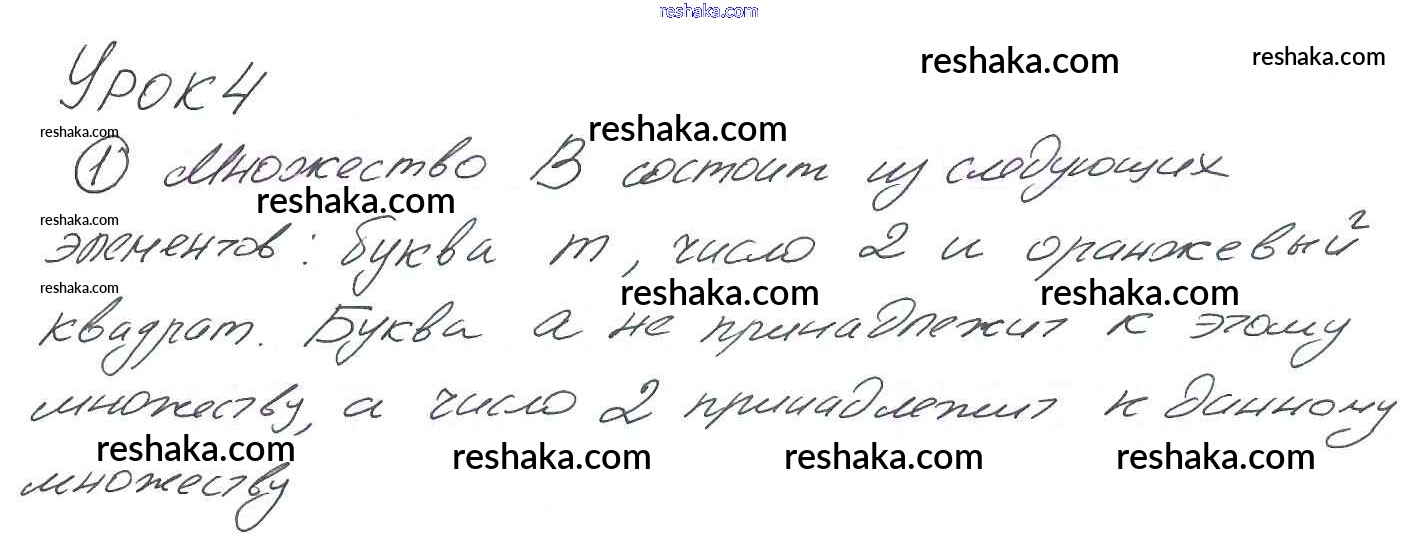 reshaka.com
reshaka.com
reshaka.com
Урок 4
reshaka.com
reshaka.com
1 Множество B состоит из следующих
reshaka.com
reshaka.com
элементов: буква m, число 2 и оранжевый 2
reshaka.com
reshaka.com
reshaka.com
квадрат. Буква а не принадлежит к этому
множеству, а число 2 принадлежит к данному
reshaka.com
reshaka.com
reshaka.com
reshaka.com
множеству